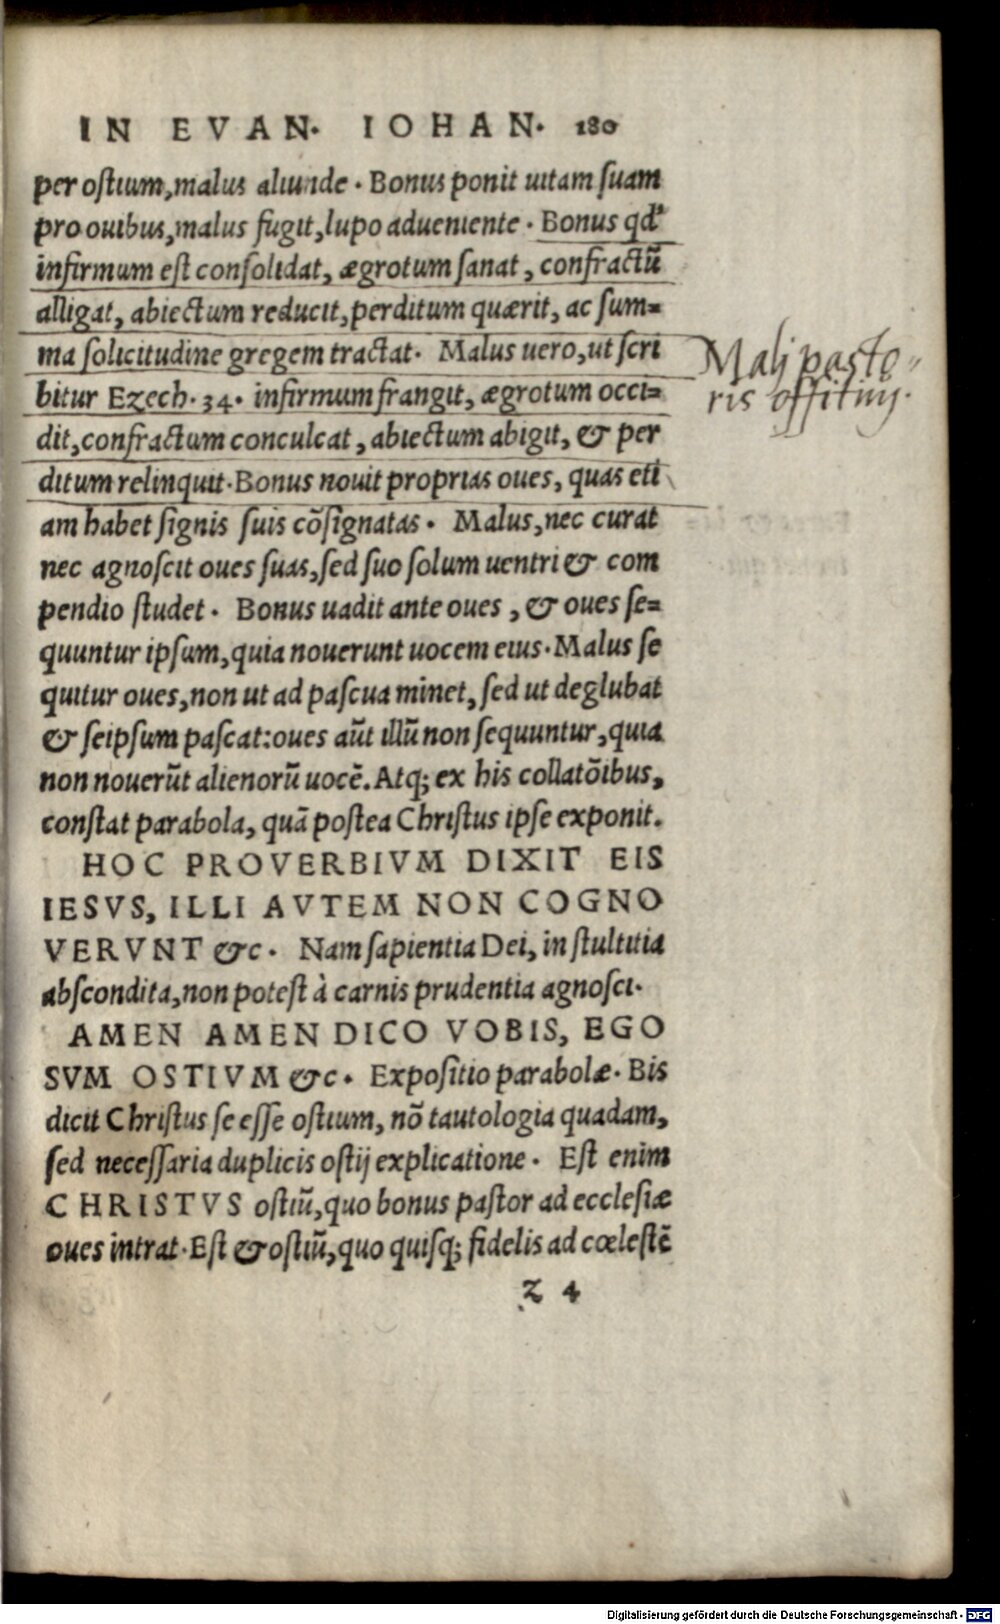 IN EVAN. IOHAN. 180
per ostium, malus aliunde. Bonus ponit uitam suam
pro ouibus, malus fugit, lupo adueniente. Bonus qd'
infirmum est consolidat, ægrotum sanat, confractũ
alligat, abiectum reducit, perditum quærit, ac sum=
ma solicitudine gregem tractat. Malus uero, ut scri
bitur Ezech. 34. infirmum frangit, ægrotum occi=
dit, confractum conculcat, abiectum abigit, & per
ditum relinquit. Bonus nouit proprias oues, quas eti
am habet signis suis cõsignatas. Malus, nec curat
nec agnoscit oues suas, sed suo solum uentri & com
pendio studet. Bonus uadit ante oues, & oues se=
quuntur ipsum, quia nouerunt uocem eius. Malus se
quitur oues, non ut ad pascua minet, sed ut deglubat
& seipsum pascat: oues aũt illũ non sequuntur, quia
non nouerũt alienorũ uocẽ. Atq; ex his collatõibus,
constat parabola, quã postea Christus ipse exponit.
HOC PROVERBIVM DIXIT EIS
IESVS, ILLI AVTEM NON COGNO
VERVNT &c. Nam sapientia Dei, in stultitia
abscondita, non potest à carnis prudentia agnosci.
AMEN AMEN DICO VOBIS, EGO
SVM OSTIVM &c. Expositio parabolæ. Bis
dicit Christus se esse ostium, nõ tautologia quadam,
sed necessaria duplicis ostij explicatione. Est enim
CHRISTVS ostiũ, quo bonus pastor ad ecclesiæ
oues intrat. Est & ostiũ, quo quisq; fidelis ad cœlestẽ
z 4
Malj pasto=
ris offitiuj.
Digitalisierung gefördert durch die Deutsche Forschungsgemeinschaft - DFG